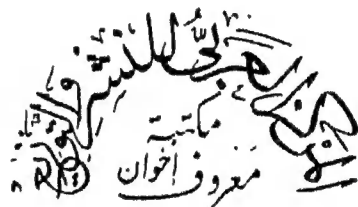 المركز العربي للنشر والتوزيع
مكتبة
معروف إخوان